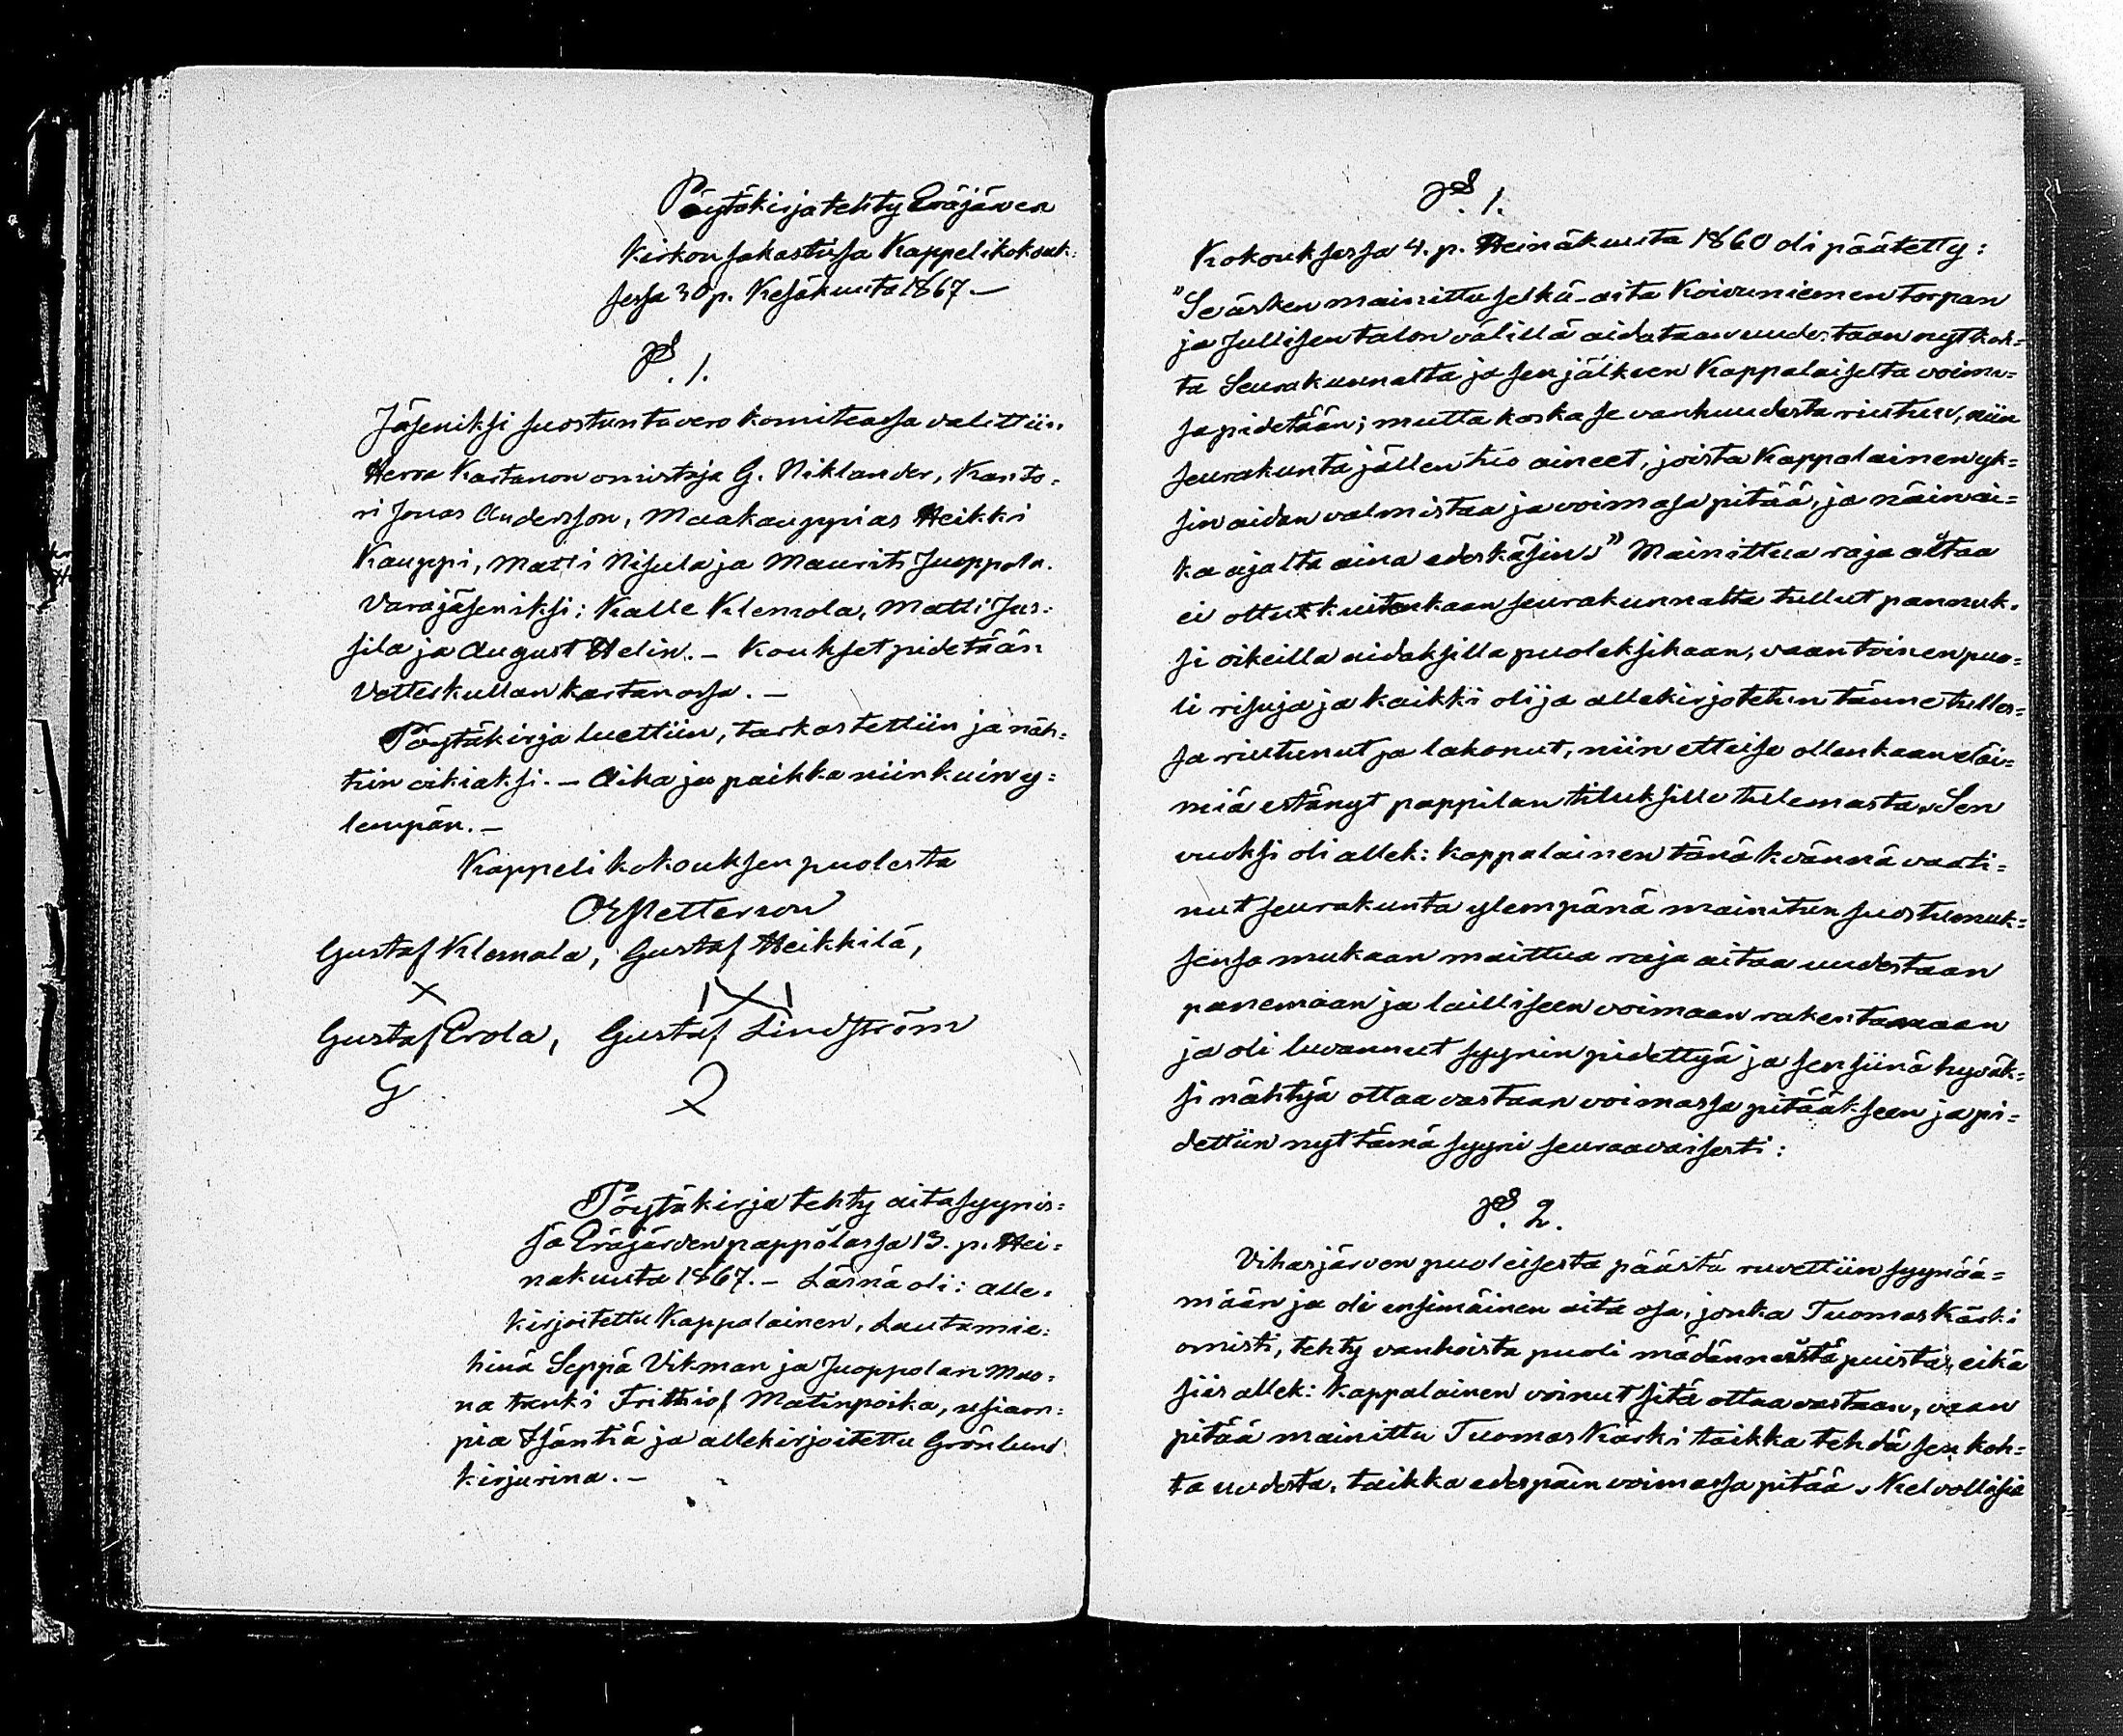 Pöytäkirja tehty Eräjärven
Kirkon sakastissa Kappelikokouk=
sessa 30 p. Kesäkuuta 1867.—
§. 1.
Jäseniksi suostuntavero komiteassa valittiin
Herra Kartanon omistaja G. Niklander, Kanto=
ri Jonas Andersson, Maakauppias Heikki
Kauppi, Matti Nisula ja Maurits Juoppola.
Varajäseniksi: Kalle Klemola, Matti Jus=
sila ja August Helin.— Koukset pidetään
Vetteskullan kartanossa.—
Pöytäkirja luettiin, tarkastettiin ja näh=
tiin oikiaksi.— Aika ja paikka niinkuin y=
lempän.—
Kappeli kokouksen puolesta
Petterson
Gustaf Klemola, Gustaf Heikkilä,
Gustaf Erola, Gustaf Lindström
G
Pöytäkirja tehty aitasyynis=
sä Eräjärven pappilassa 13. p. Hei=
näkuuta 1867.— Läsnä oli: alle=
kirjoitettu Kappalainen, Lautamie=
hinä Seppä Vikman ja Juoppolan Muo=
na trenki Frithiof Matinpoika, usiam=
pia Isäntiä ja allekirjoitettu Grönlund
kirjurina.—
§. 1.
Kokouksessa 4. p. Heinäkuuta 1860 oli päätetty:
"Se äsken mainittu selkä-aita Koivuniemen torpan
ja Jullisen talon välillä aidataan uudestaan nyt koh=
ta Seurakunnalta ja sen jälkeen Kappalaiselta voima=
sa pidetään; mutta koska se vanhuudesta riutuu, niin
seurakunta jällen tuo aineet, joista Kappalainen yk=
sin aidan valmistaa ja voimasa pitää, ja näin ai=
ka ajalta aina edeskäsin." Mainittua raja aitaa
ei ollut kuitenkaan seurakunnalta tullut pannuk=
si oikeilla aidaksilla puoleksikaan, vaan toinen puo=
li risuja ja kaikki olija allekirjotetun tänne tulles=
sa riutunut ja lahonut, niin ettei se ollenkaan eläi=
miä estänyt pappilan tiluksille tulemasta. Sen
vuoksi oli allek: Kappalainen tänä kvännä vaati=
nut seurakunta ylempänä mainitun suostumuk=
sensa mukaan maittua raja aitaa uudestaan
panemaan ja lailliseen voimaan rakentamaan
ja oli luvannut syynin pidettyä ja sen siinä hyväk=
si nähtyä ottaa vastaan voimassa pitääkseen ja pi=
dettiin nyt tämä syyni seuraavaisesti:
§. 2.
Vihasjärven puoleisesta päästä ruvettiin syynää=
mään ja oli ensimäinen aita osa, jonka Tuomas Kärki
omisti, tehty vanhoista puoli mädänneistä puista, eikä
siis allek: Kappalainen voinut sitä ottaa vastaan, vaan
pitää mainittu Tuomas Kärki taikka tehdä sen koh=
ta uudesta, taikka edespäin voimassa pitää. Kelvollisia